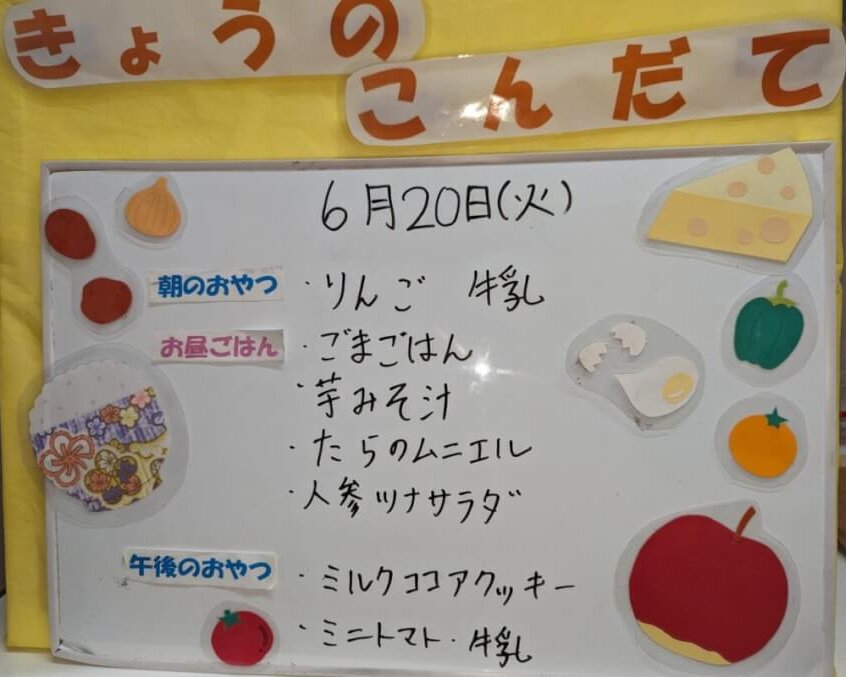 きょうの
こんだて
6月20日(火)
朝のおやつ ・りんご 牛乳
お昼ごはん ・ごまごはん
・芋みそ汁
・たらのムニエル
・人参ツナサラダ
午後のおやつ ・ミルクココアクッキー
・ミニトマト・牛乳